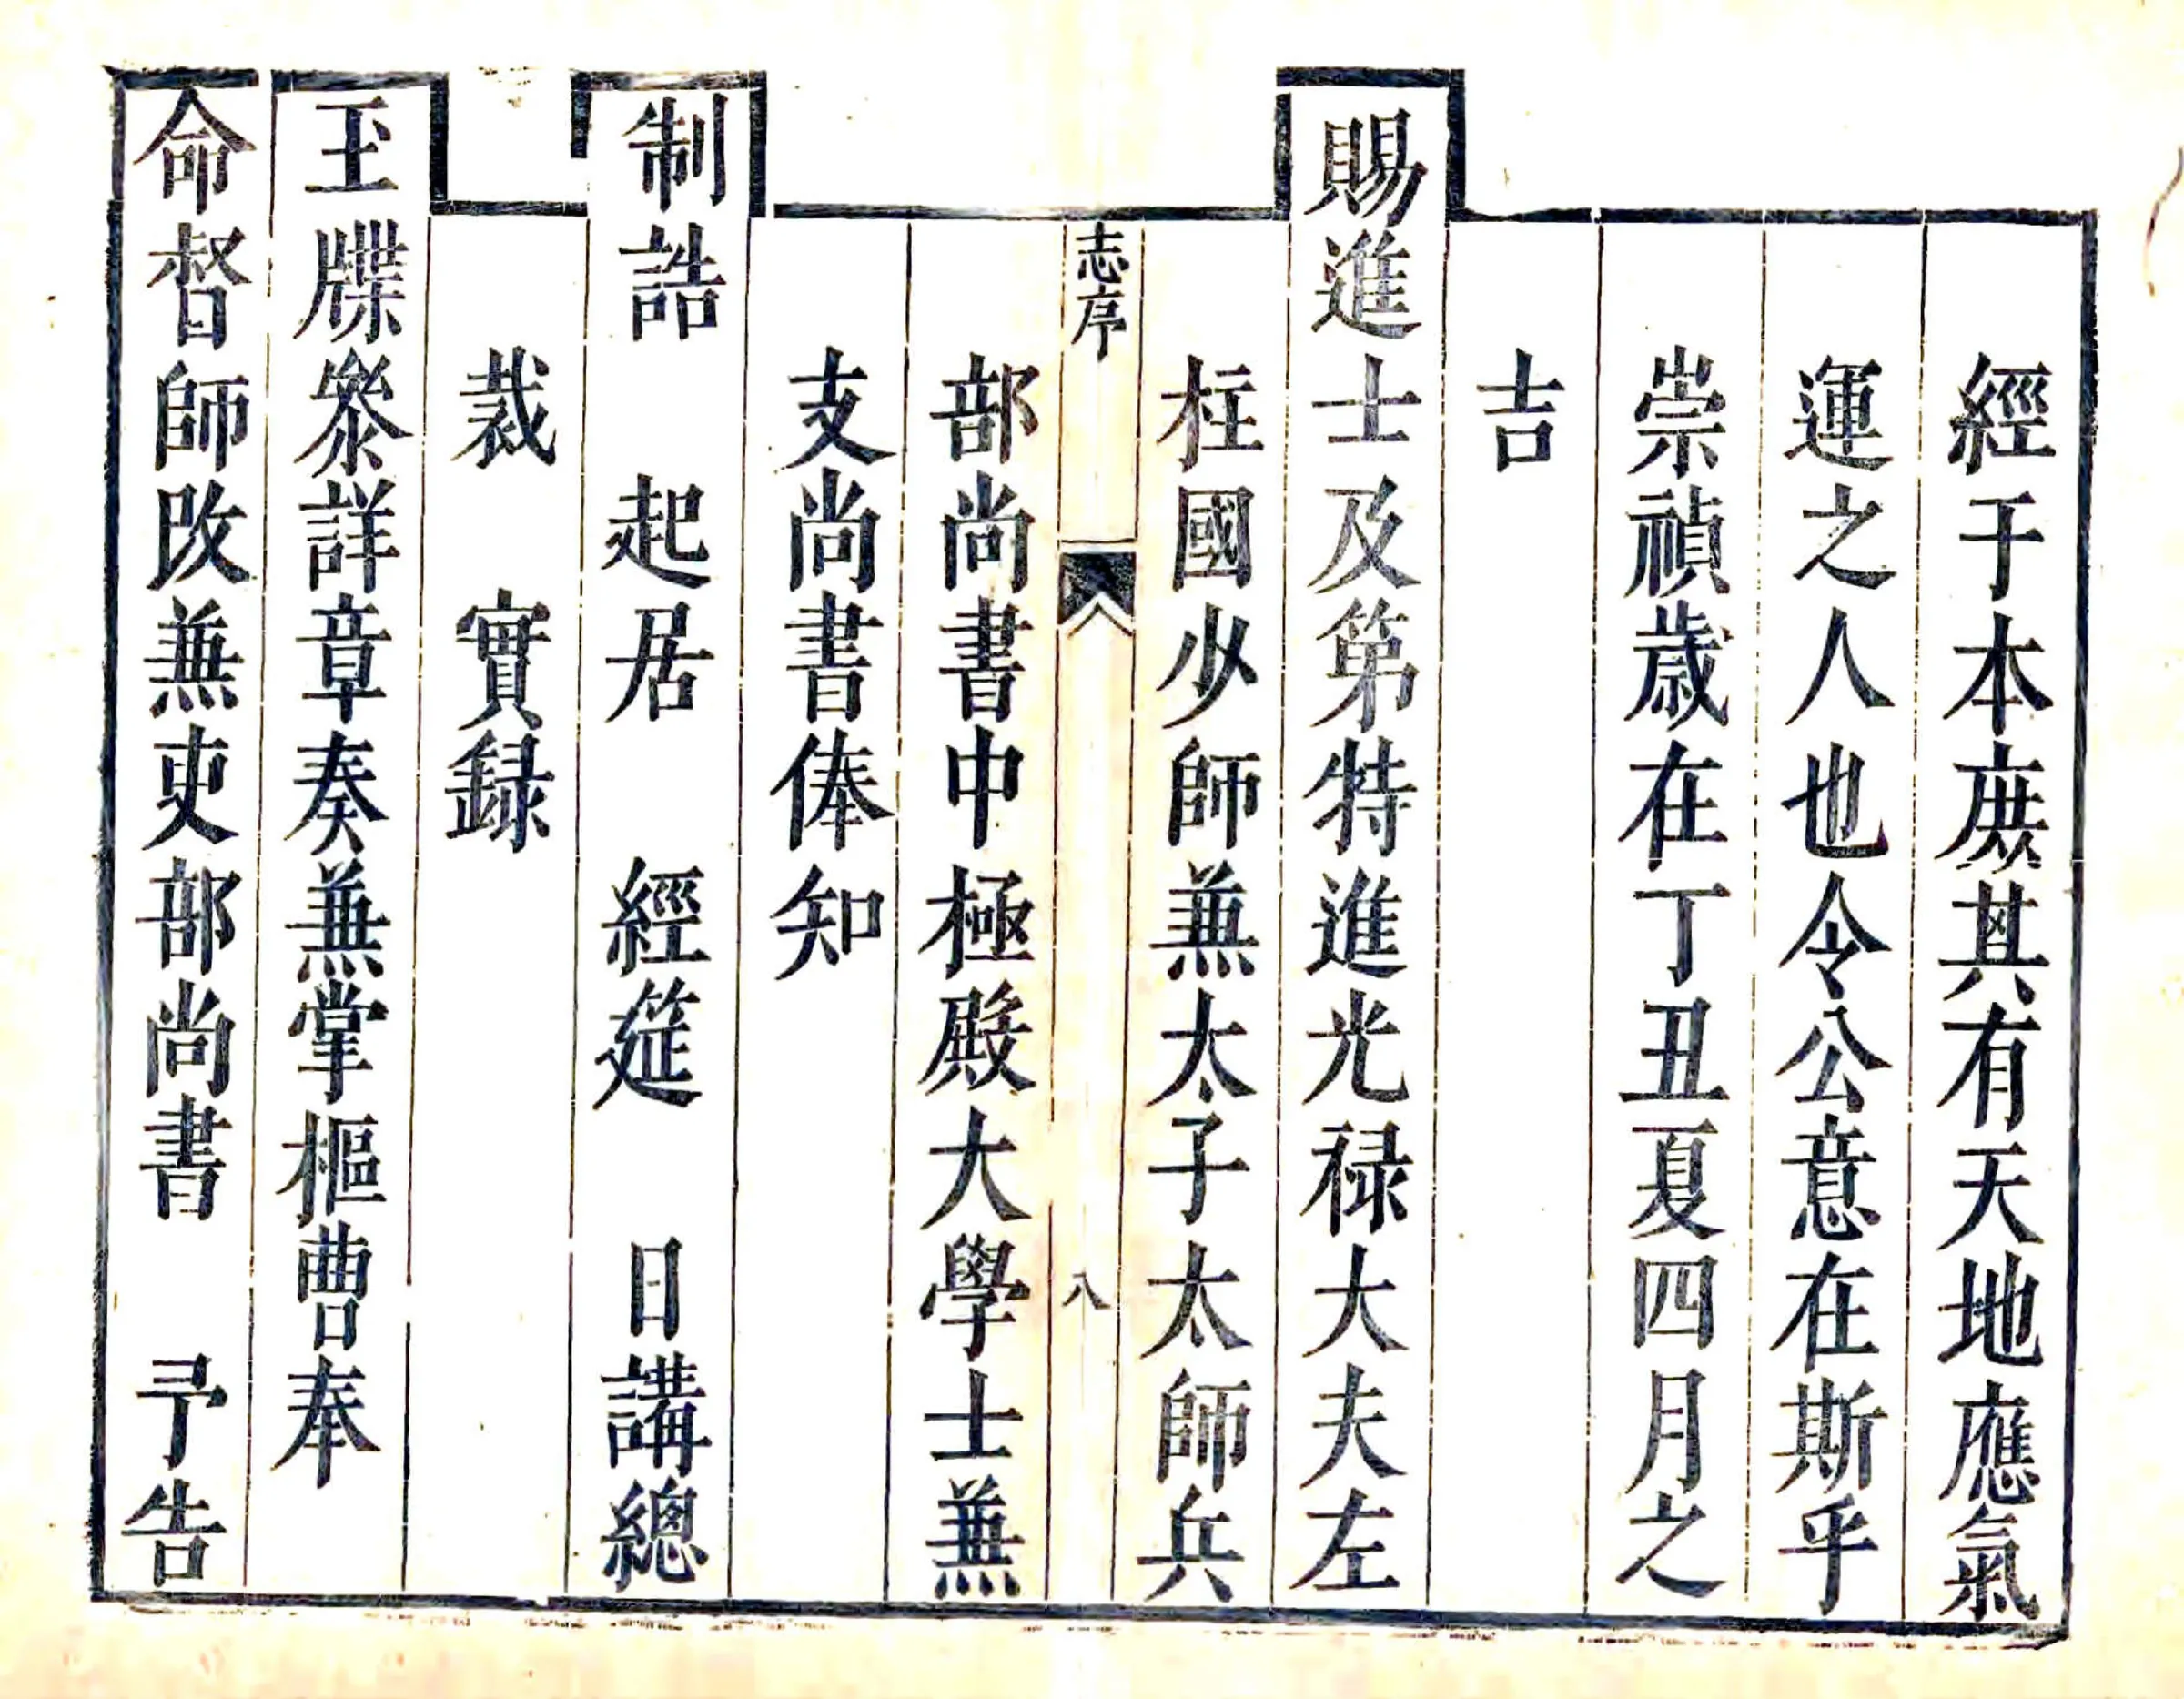 經于本庶其有天地應氣
運之人也令公意在斯乎
崇禎歲在丁丑夏四月之
吉
賜進士及第特進光禄大夫左
柱國少師兼太子太師兵
志序
八
部尚書中極殿大學士兼
支尚書俸知
制誥 起居 經筵 日講總
裁 實録
玉牒叅詳章奏兼掌樞曹奉
命督師改兼吏部尚書 予告